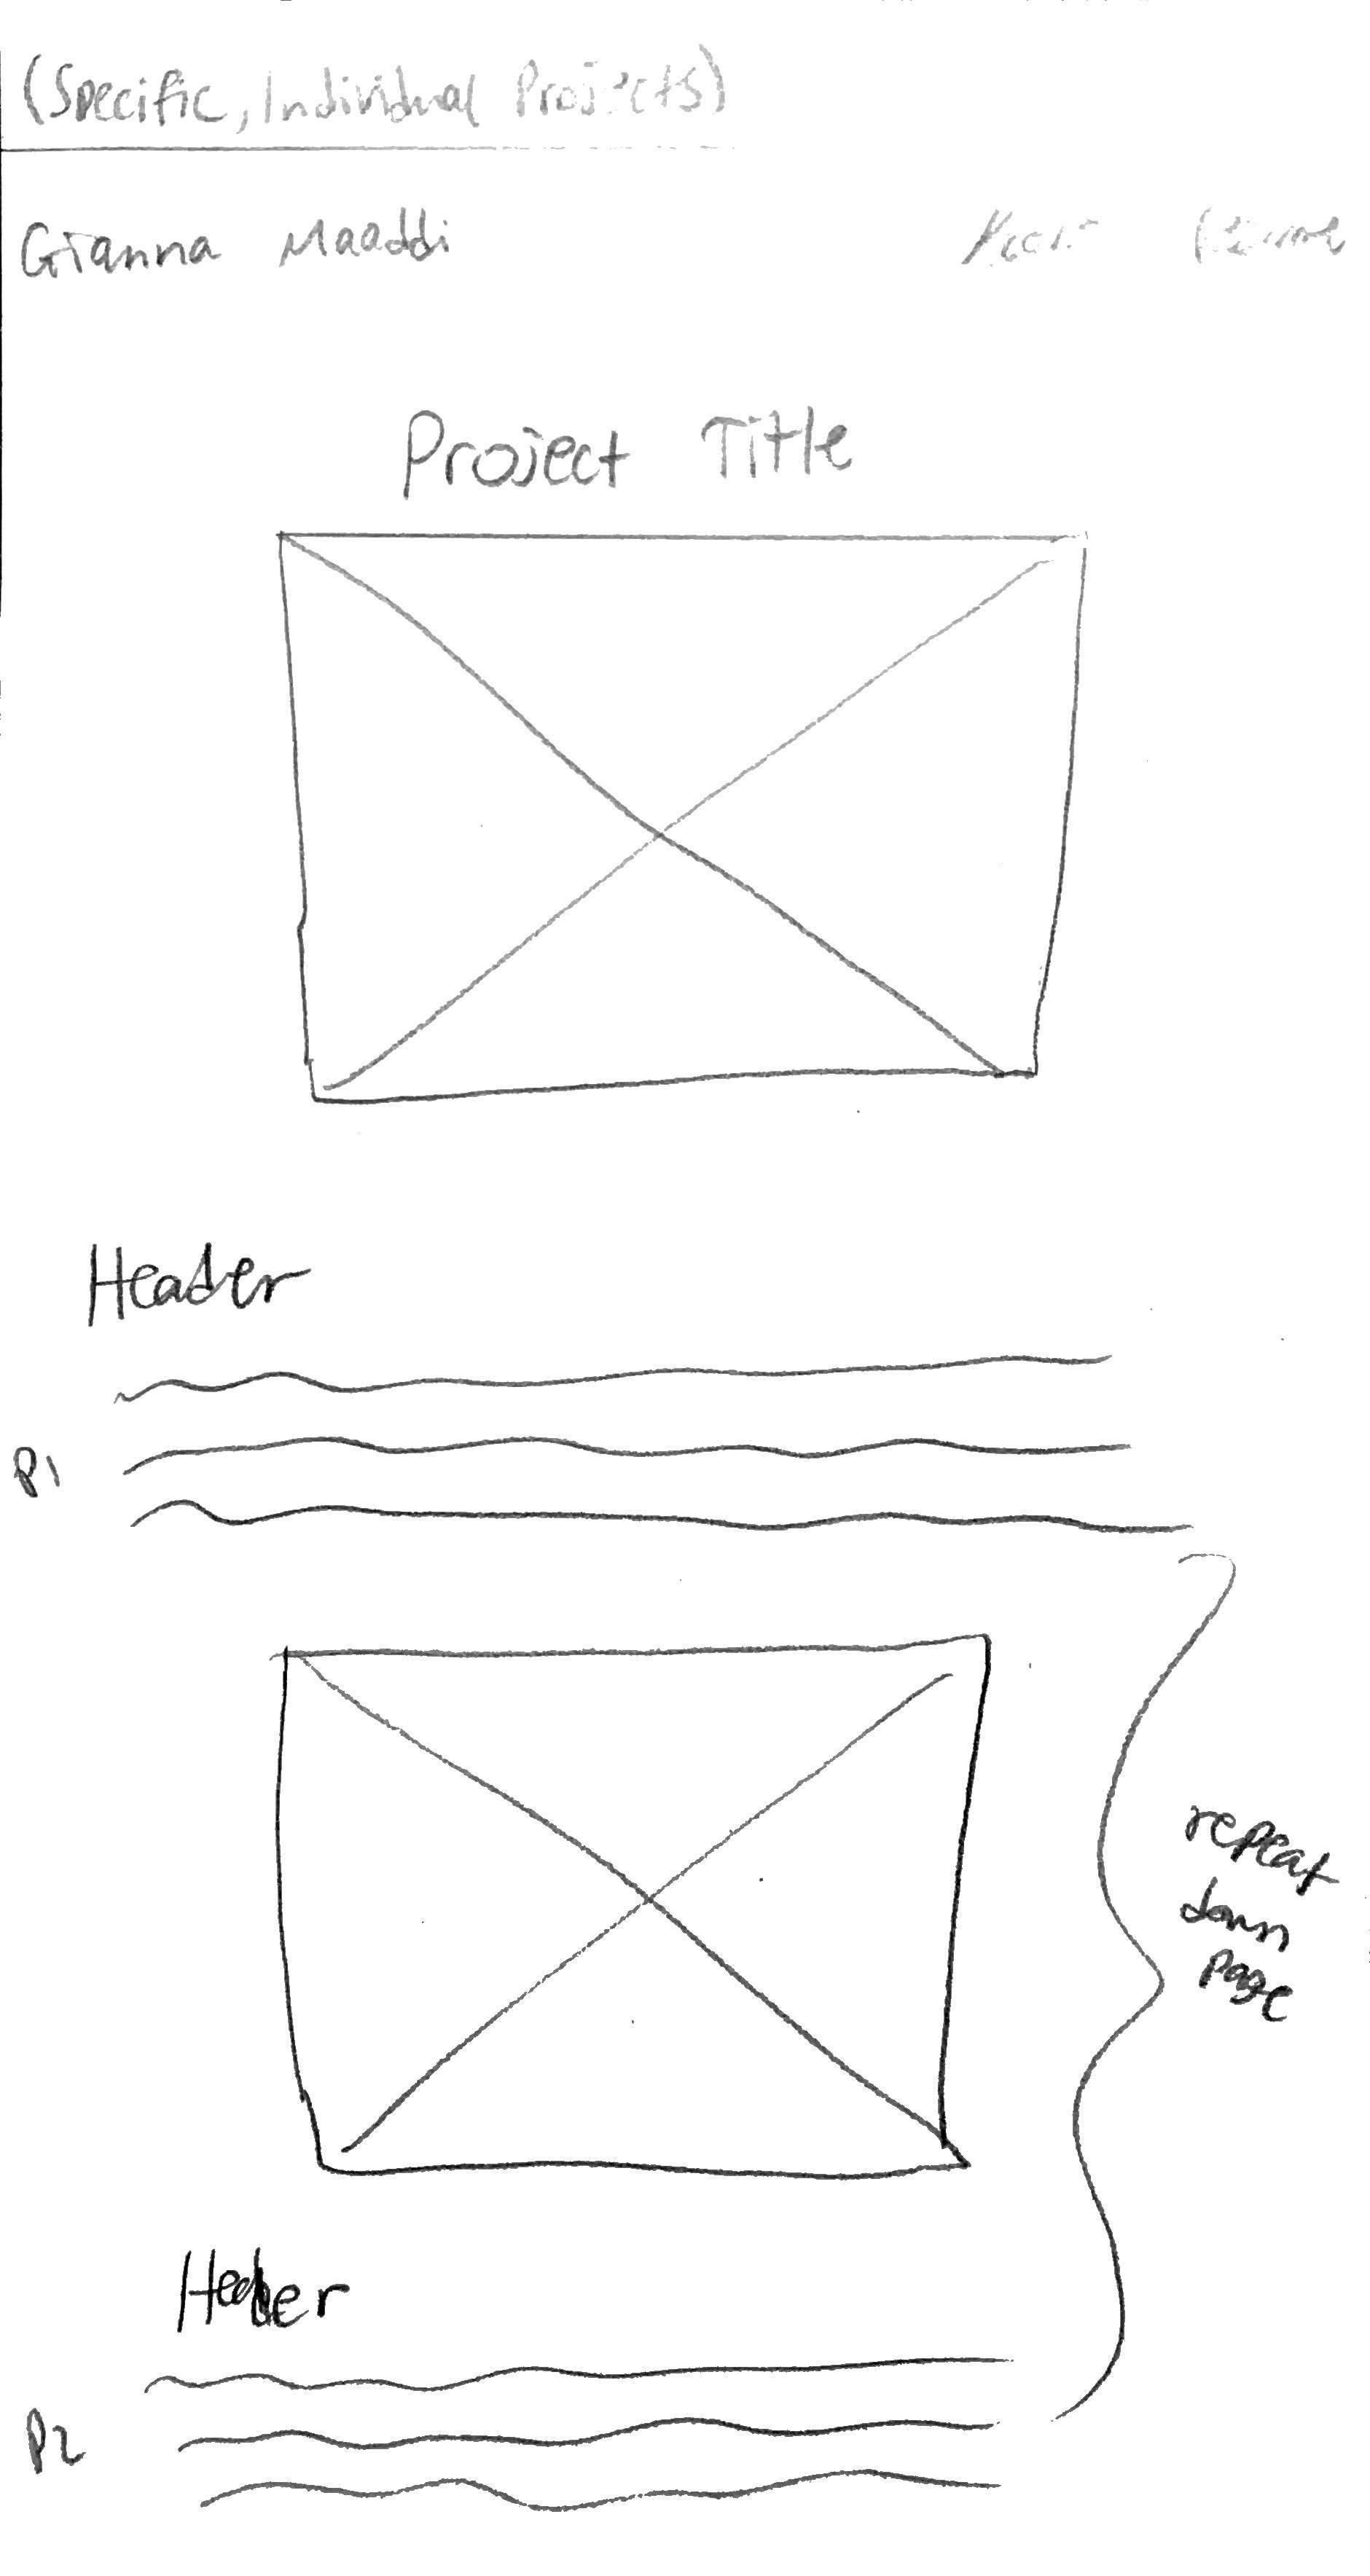 (Specific, Individual Projects)
Gianna Maaddi
Project Title
Header
P1
repeat
down
page
Header
P2